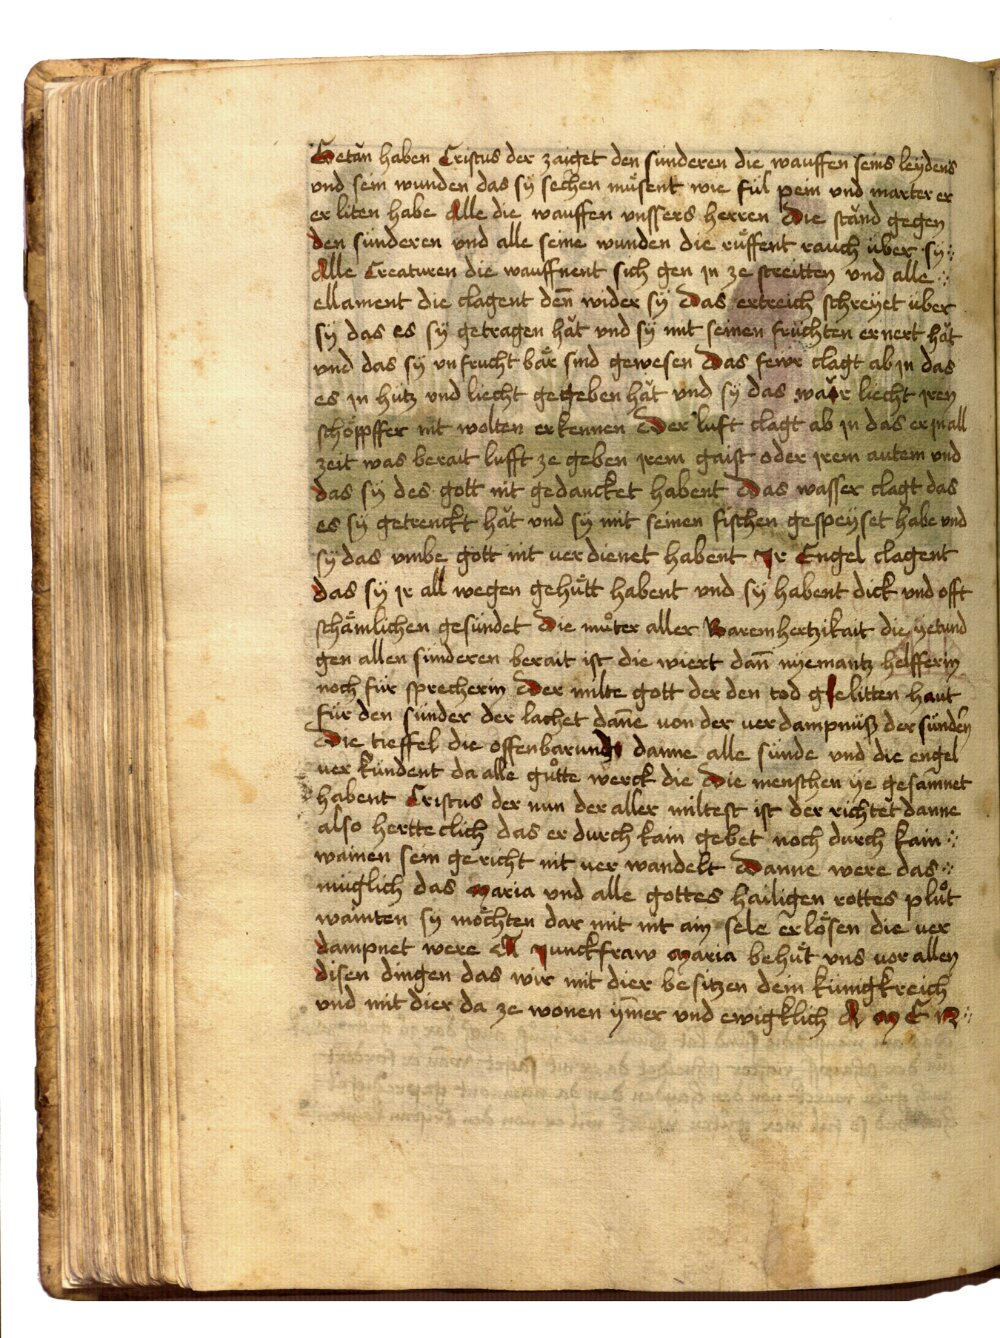 Getăn haben Cristus der zaiget den sünderen die wauffen seins leÿdens
vnd sein wunden das sÿ sechen müͤsent wie fül pein vnd marter er
er liten habe Alle die wauffen vnssers herren Die stănd gegen
den sünderen vnd alle seine wunden die rüͤffent rauch über sÿ
Alle Creaturen die wauffnent sich gen jn ze streitten vnd alle
ellament die clagent den̄ wider sÿ Das ertreich schreÿet über
sÿ das es sÿ getragen hăt vnd sÿ mit seinen früchten ernert hăt
vnd das sÿ vnfrucht bäͤr sind gewesen Das fewr clagt ab jn das
es jn hitz vnd liecht gegeben hăt vnd sÿ das war liecht jren
schöpffer nit wolten erkennen Der luft clagt ab jn das er jn all
zeit was berait lufft ze geben jrem gaist oder jrem autem vnd
das sÿ des gott nit gedancket habent Das wasser clagt das
es sÿ getrenckt hăt vnd sÿ mit seinen fischen gespeÿset habe vnd
sÿ das vmbe gott nit verdienet habent Jr Engel clagent
das sÿ jr all wegen gehüͤtt habent vnd sÿ habent dick vnd offt
schäͤmlichen gesündet Die muͦter aller Baremhertzikait die ÿetund
gen allen sünderen berait ist die wiert dan̄ nÿemantz helfferin
noch für sprecherin Der milte gott der den tod gelitten haut
für den sünder der lachet dan̄e von der verdampnüß der sünden
Die tieffel die offenbarund danne alle sünde vnd die engel
ver kündent da alle guͦtte werck die Die menschen ÿe gesam̄et
habent Cristus der nun der aller miltest ist der richtet danne
also herttecklich das er durch kain gebet noch durch kain
wainen sein gericht nit ver wandelt Danne were das
müglich das Maria vnd alle gottes hailigen rottes pluͦt
wainten sÿ möͤchten dar mit nit ain sele erlöͤsen die ver
dampnet were A Junckfraw Maria behüͤt vns vor allen
disen dingen das wir mit dier besitzen dein künigkreich
vnd mit dier da ze wonen ÿm̄er vnd ewigklich A M E N